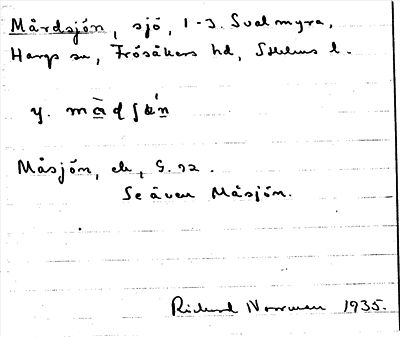 Mårdsjön, sjö, 1-3. Svalmyra,
Hargs sn, Frösåkers hd, Sthlms l.
y. mạ̊̀dʃɵ́n
Måsjön, ek, G. 92.
Se även Måsjön.
Richard Norrman 1935.